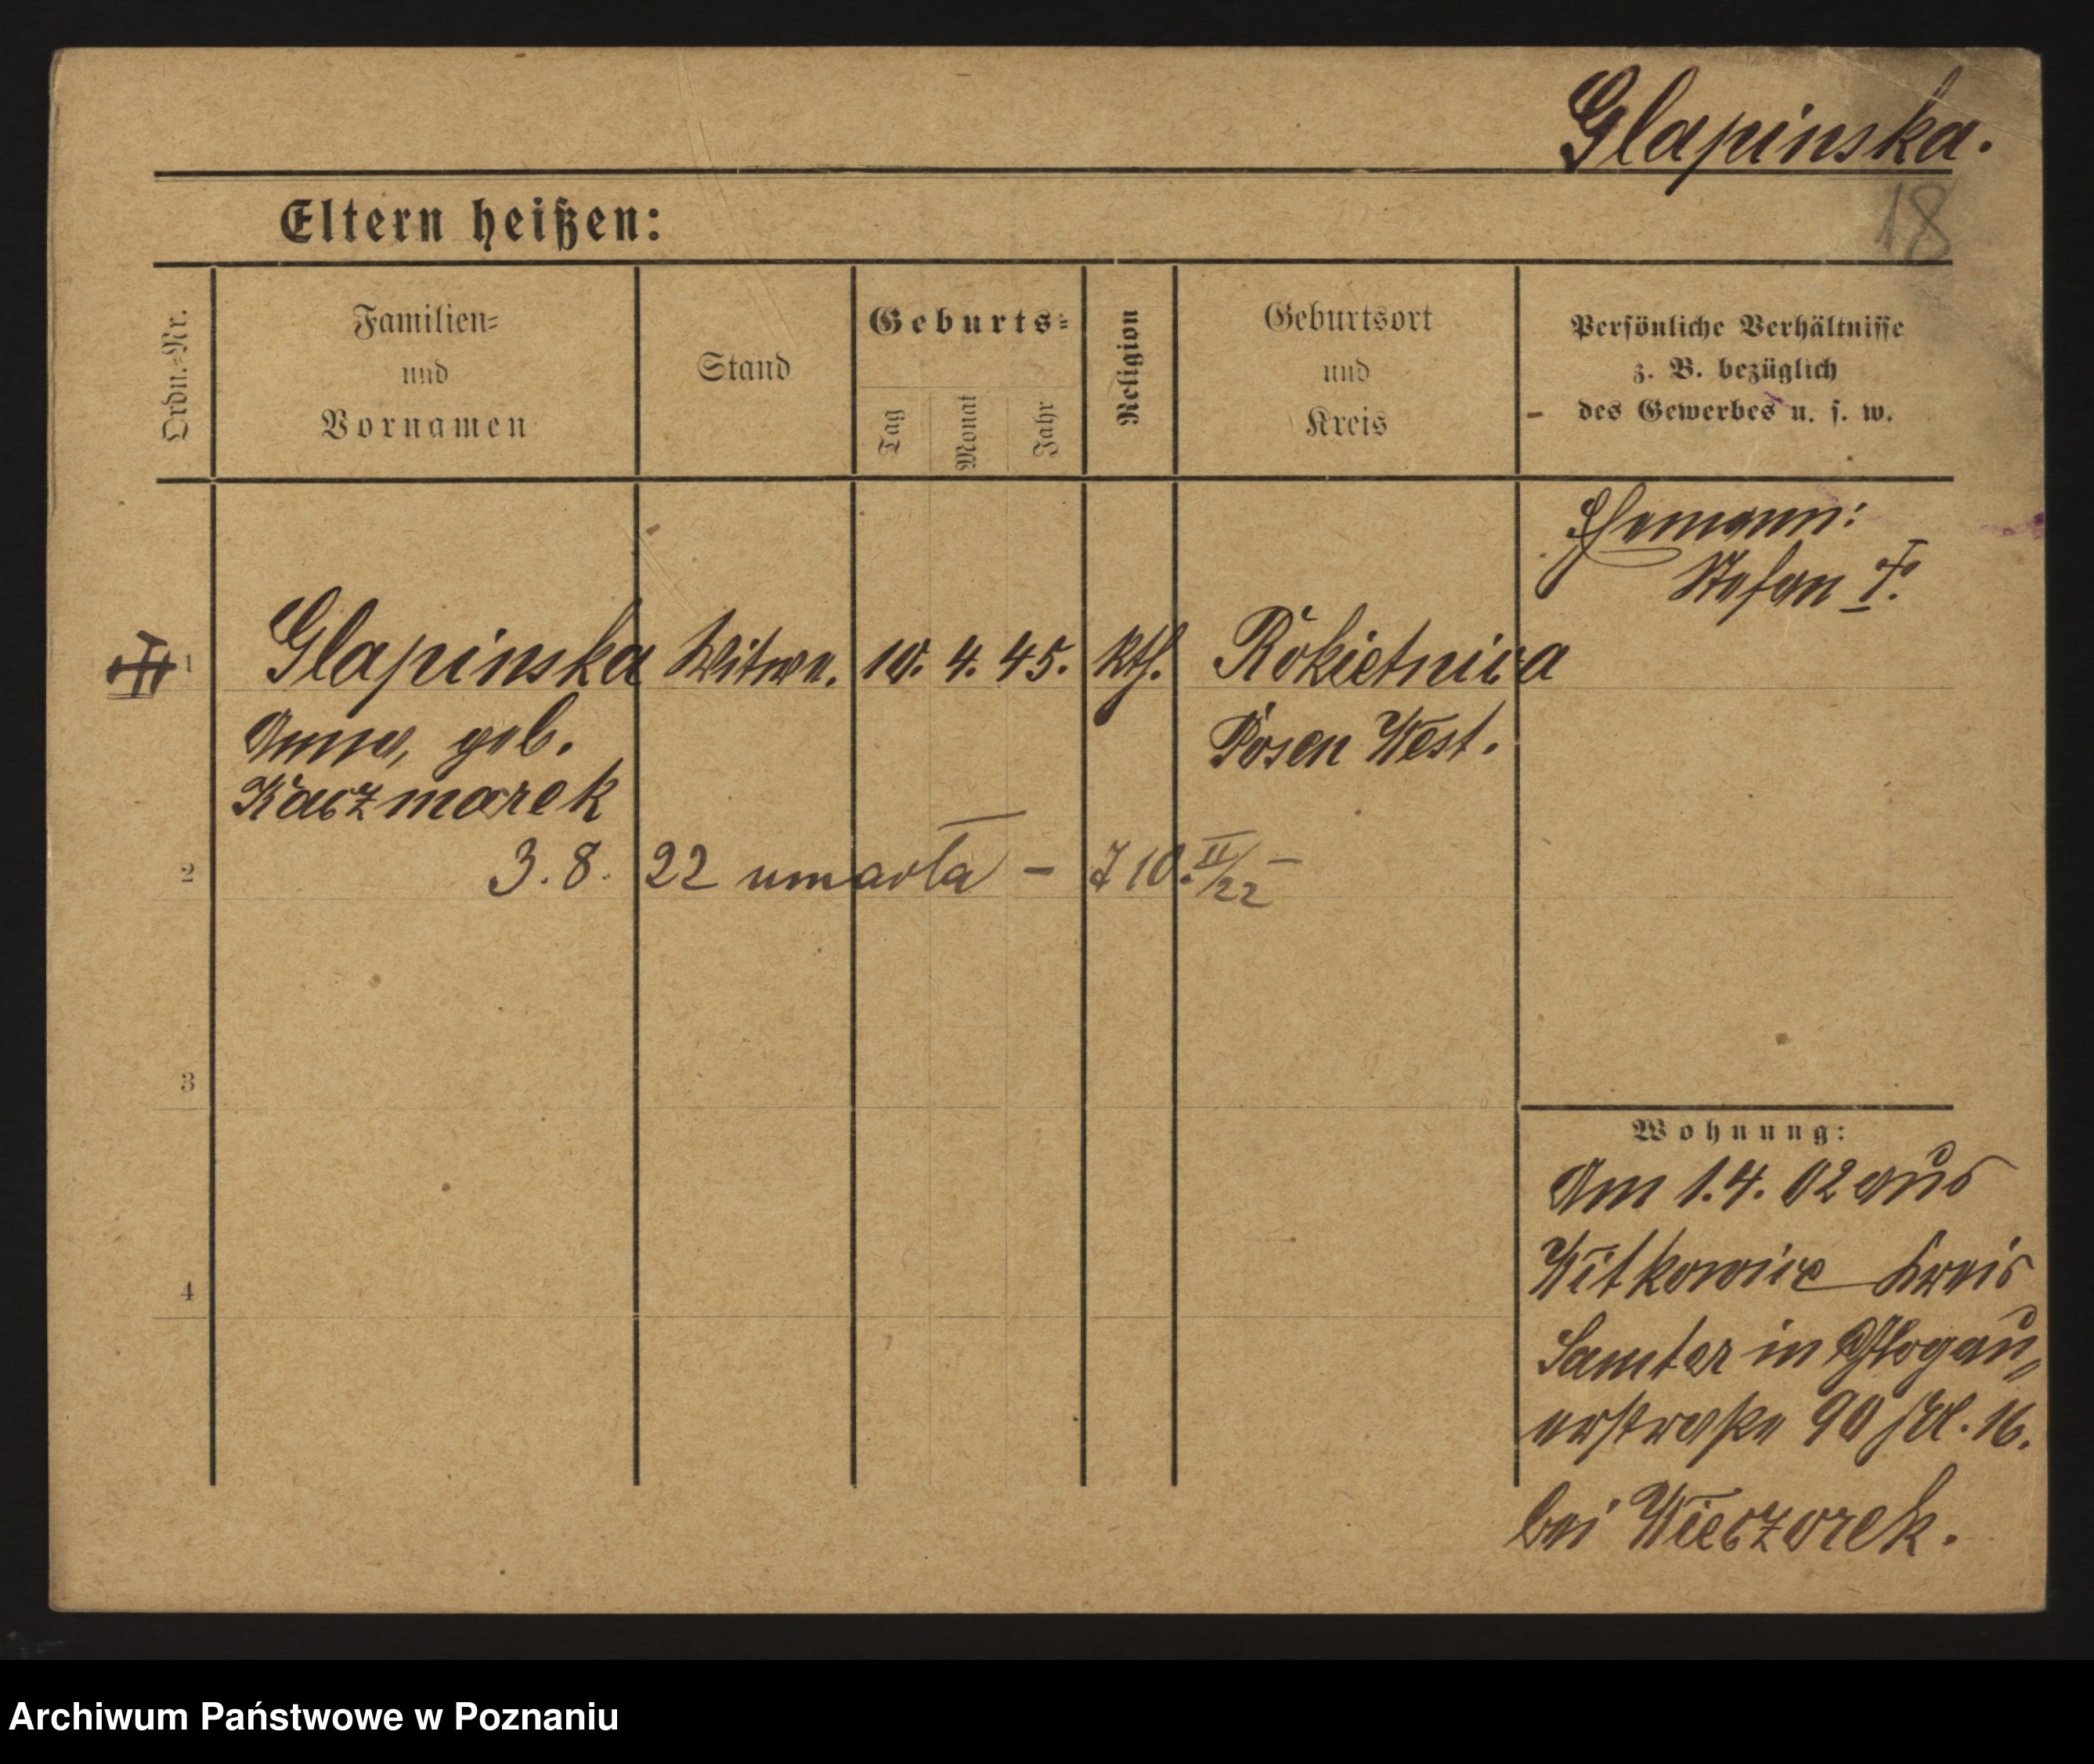 Glapinska.
18
Eltern heißen:
Ordn.-Nr.
Familien-
und
Vornamen
Stand
Geburts-
Tag
Monat
Jahr
Religion
Geburtsort
und
Kreis
Persönliche Verhältnisse
z. B. bezüglich
des Gewerbes u. s. w.
Ehemann:
Stefan †.
1 Glapinska Witwe. 10. 4. 45. kth. Rokietnica
Anna, geb. Posen West.
Kaczmarek
2 3. 8. 22 umarła – 10. II/22 –
3
4
Wohnung:
Am 1. 4. 02 aus
Witkowice Kreis
Samter in Glogau-
erstraße 90 stl. 16.
bei Wieczorek.
Archiwum Państwowe w Poznaniu